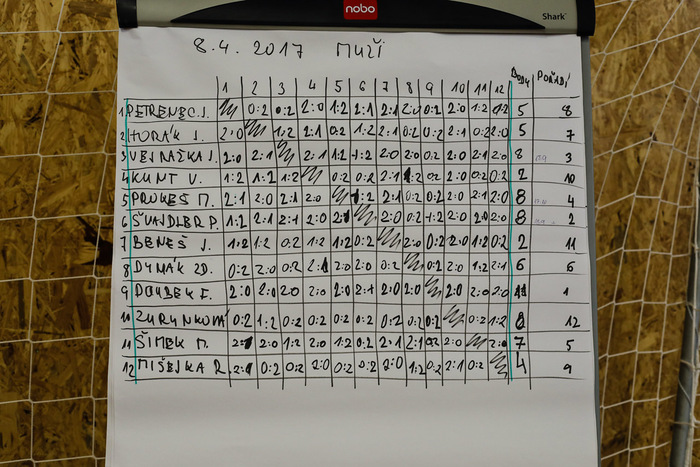 nobo
Shark
8.4. 2017 MUŽI
1 2 3 4 5 6 7 8 9 10 11 12 BODY POŘADÍ
1 PETRENEC J. 0:2 0:2 2:0 1:2 2:1 2:1 2:0 0:2 2:0 1:2 1:2 5 8
2 HORÁK J. 2:0 1:2 2:1 0:2 1:2 2:1 0:2 0:2 2:1 0:2 2:0 5 7
3 VEJRAŽKA J. 2:0 2:1 2:1 1:2 1:2 2:0 2:0 0:2 2:0 2:1 2:0 8 3
4 KUNT V. 1:2 1:2 1:2 0:2 0:2 2:1 1:2 0:2 2:0 0:2 0:2 2 10
5 PROKEŠ M. 2:1 2:0 2:1 2:0 1:2 2:1 0:2 0:2 2:0 2:1 2:0 8 4
6 ŠVAJDLER P. 1:2 2:1 2:1 2:0 2:1 2:0 0:2 1:2 2:0 2:0 2:0 8 2
7 BENEŠ J. 1:2 1:2 0:2 1:2 1:2 0:2 2:0 0:2 2:0 1:2 0:2 2 11
8 DYMÁK ZD. 0:2 2:0 0:2 2:1 2:0 2:0 0:2 0:2 2:0 1:2 2:1 6 6
9 2:0 2:0 2:0 2:0 2:0 2:1 2:0 2:0 2:0 2:0 2:0 11 1
10 0:2 1:2 0:2 0:2 0:2 0:2 0:2 0:2 0:2 0:2 1:2 12
11 ŠIMEK M. 2:1 2:0 1:2 2:0 1:2 0:2 2:1 2:1 0:2 2:0 2:0 7 5
12 MIŠEJKA R. 2:1 0:2 0:2 2:0 0:2 0:2 2:0 1:2 0:2 2:1 0:2 4 9